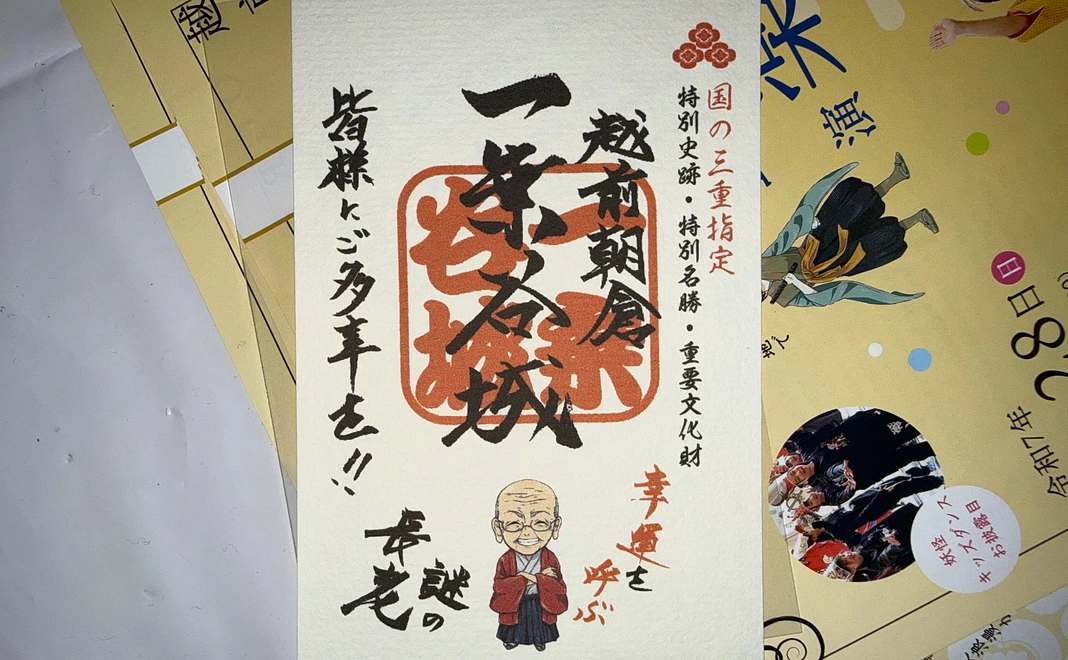 国の三重指定
特別史跡・特別名勝・重要文化財
越前朝倉
一乗谷城
皆様にご多幸を!!
幸運を
呼ぶ
謎の
長老
一乗
谷城
越
演
日
28日
令和7年
妖怪
キッズダンス
お披露目